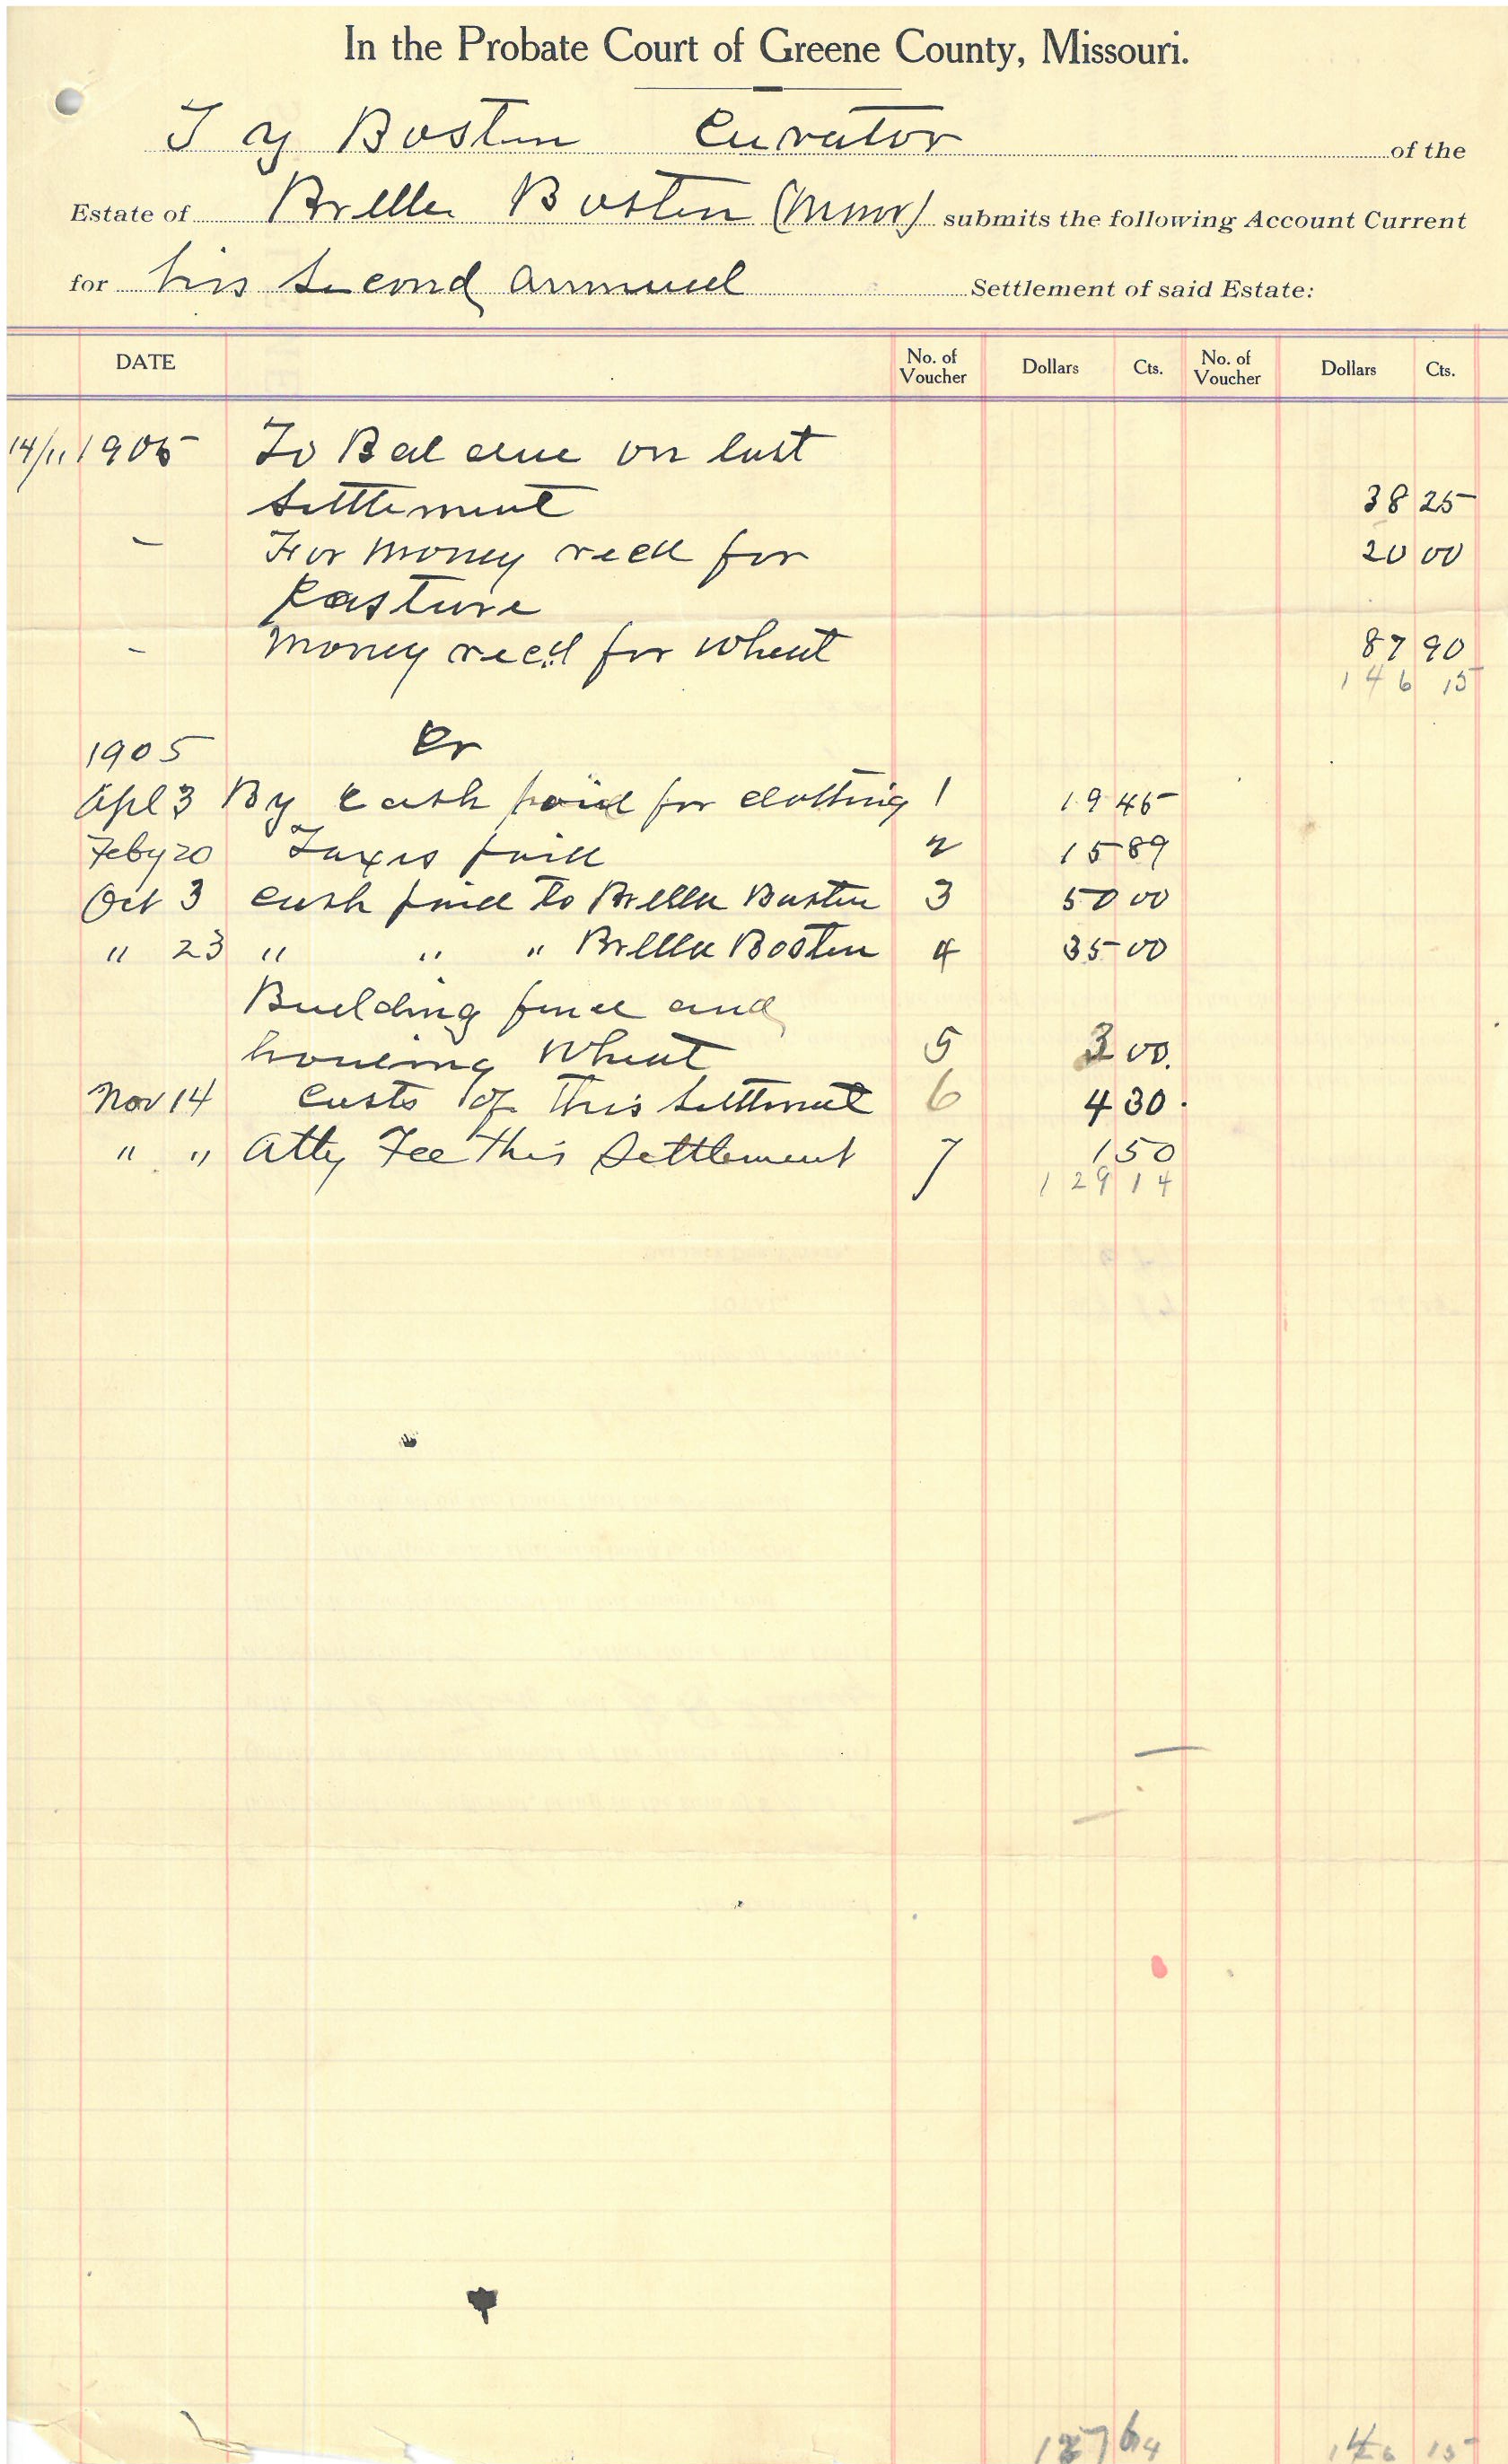 In the Probate Court of Greene County, Missouri.
T Y Boston Curator of the
Estate of Brilla Boston (Minor) submits the following Account Current
for his second annual Settlement of said Estate:
DATE No. of Voucher Dollars Cts. No. of Voucher Dollars Cts.
14/11 1905 To Bal due on last
settlement 38 25
– For money recd for 20 00
Pasture
– Money rec'd for Wheat 87 90
146 15
1905 Cr
Apl 3 By Cash paid for clothing 1 19 45
Feby 20 Taxes paid 2 15 89
Oct 3 cash paid to Brilla Boston 3 50 00
" 23 " " " Brilla Boston 4 35 00
Building fence and
housing Wheat 5 3 00.
Nov 14 Costs of this settlement 6 4 30.
" " Atty Fee this Settlement 7 1 50
129 14
146 15